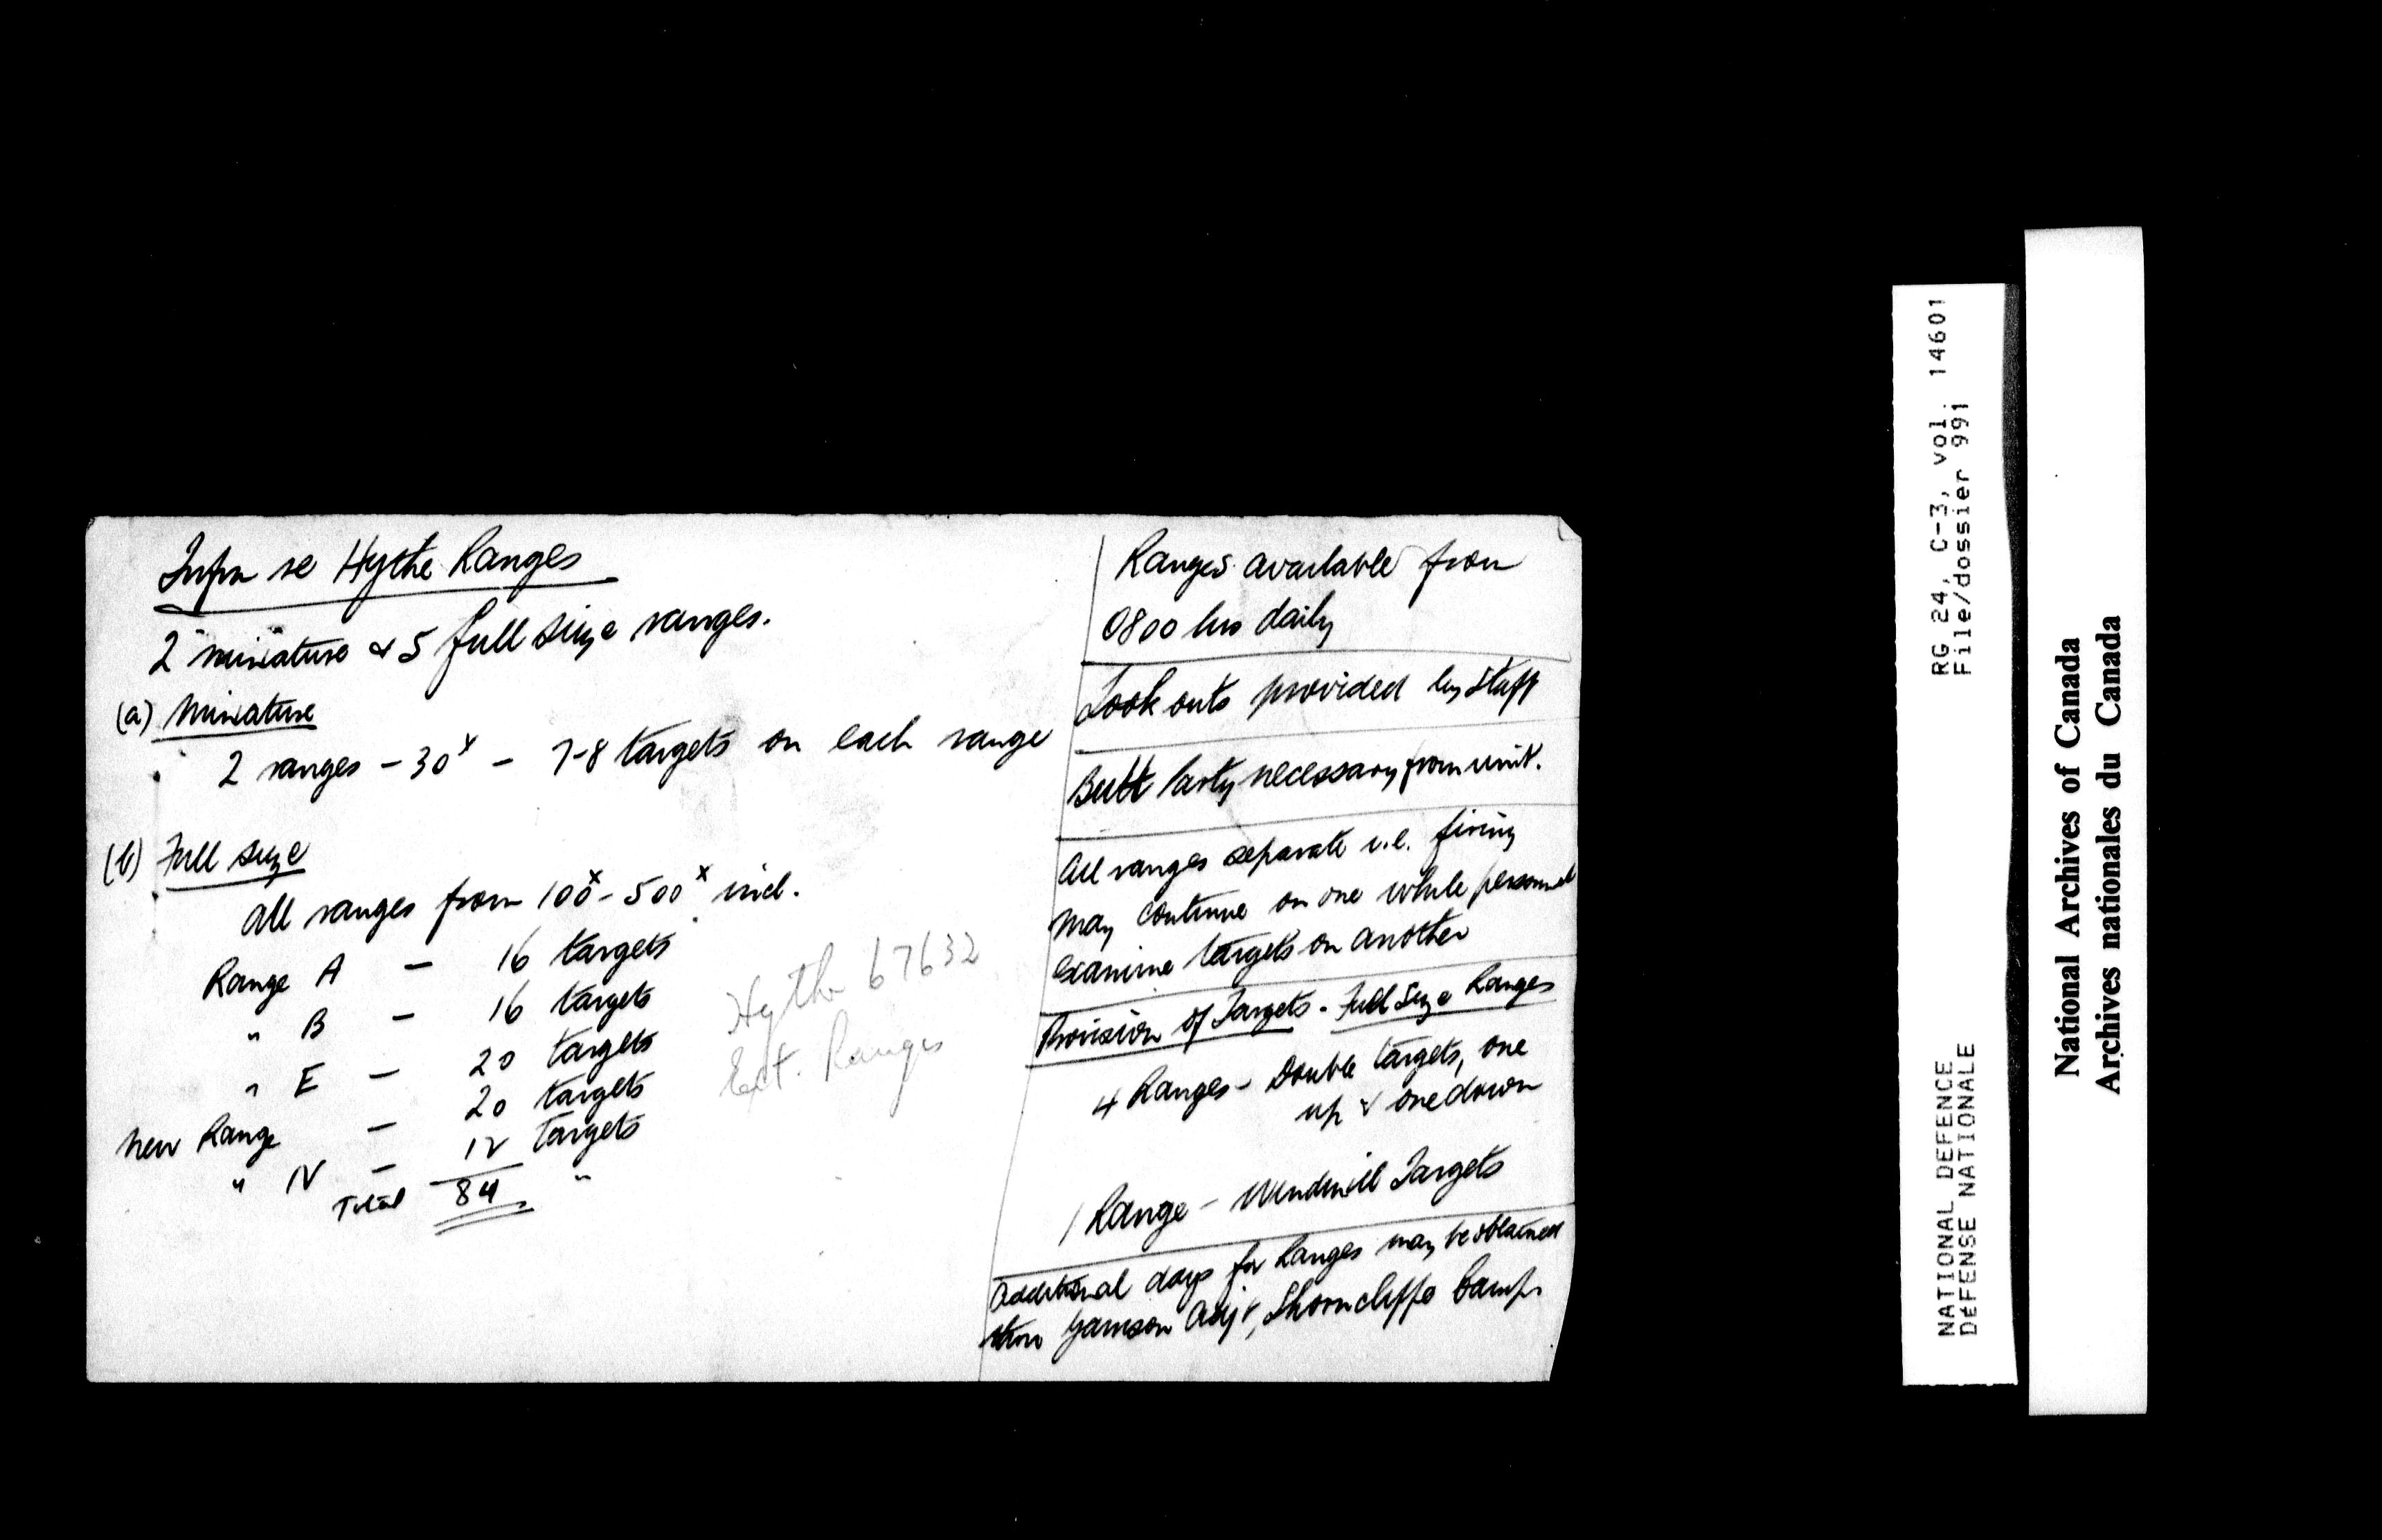 Infm re Hythe Ranges
2 miniature & 5 full size ranges.
(a) Miniature
2 ranges - 30x - 7-8 targets on each range
(b) Full size
All ranges from 100x - 500x incl.
Range A - 16 targets
" B - 16 targets
" E - 20 targets
New Range - 20 targets
" IV - 12 targets
Total 84 "
Hythe 67632
Ext. Ranges
Ranges available from
0800 hrs daily
Look outs provided by staff
Butt party necessary from unit.
All ranges separate i.e. firing
may continue on one while personnel
examine targets on another
Provision of Targets - Full Size Ranges
4 Ranges - Double targets, one
up & one down
1 Range - Windmill Targets
Additional days for Ranges may be obtained
thru Garrison Adjt, Shorncliffe Camp
RG 24, C-3, vol. 14601
File/dossier 991
NATIONAL DEFENCE
DÉFENSE NATIONALE
National Archives of Canada
Archives nationales du Canada